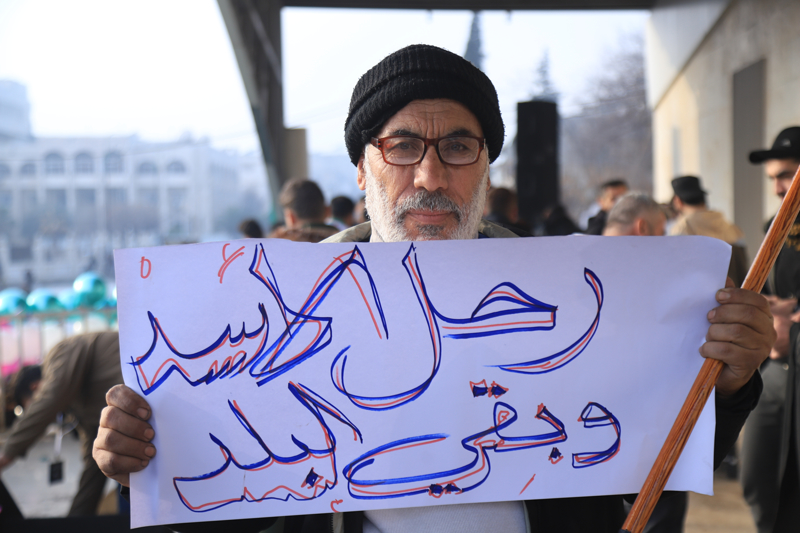 رحل الأسد
وبقي البلد